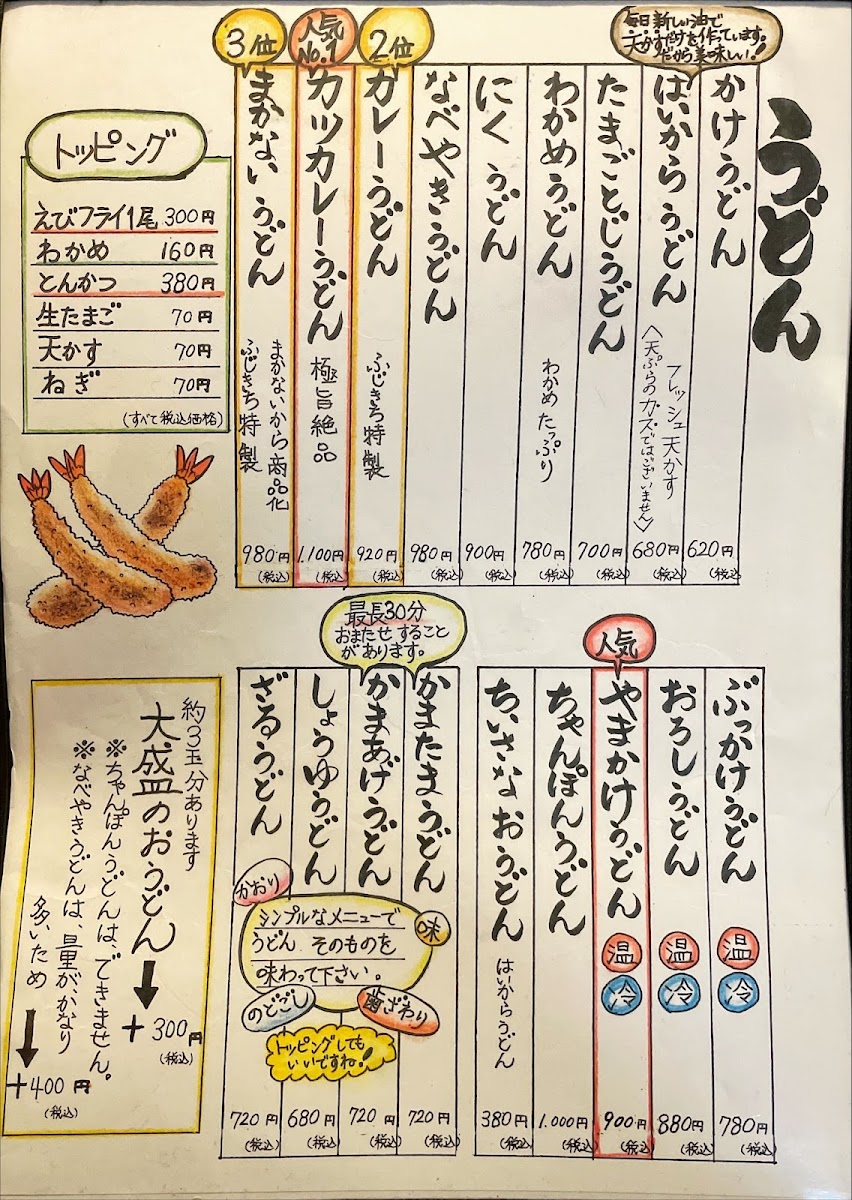 うどん
毎日新しい油で
天かすだけを作っています。
だから美味しい!
かけうどん
620円
(税込)
はいからうどん
フレッシュ天かす
〈天ぷらのカズではございません〉
680円
(税込)
たまごとじうどん
700円
(税込)
わかめうどん
わかめたっぷり
780円
(税込)
にくうどん
900円
(税込)
なべやきうどん
980円
(税込)
2位
カレーうどん
ふじきち特製
920円
(税込)
人気
No.1
カツカレーうどん
極旨絶品
1.100円
(税込)
3位
まかないうどん
まかないから商品化
ふじきち特製
980円
(税込)
トッピング
えびフライ1尾 300円
わかめ 160円
とんかつ 380円
生たまご 70円
天かす 70円
ねぎ 70円
(すべて税込価格)
ぶっかけうどん
温
冷
780円
(税込)
おろしうどん
温
冷
880円
(税込)
人気
やまかけうどん
温
冷
900円
(税込)
ちゃんぽんうどん
1.000円
(税込)
ちいさなおうどん
はいからうどん
380円
(税込)
最長30分
おまたせすること
があります。
かまたまうどん
720円
(税込)
かまあげうどん
720円
(税込)
しょうゆうどん
680円
(税込)
ざるうどん
720円
(税込)
かおり
味
シンプルなメニューで
うどんそのものを
味わって下さい。
のどごし
歯ざわり
トッピングしても
いいですね!
約3玉分あります
大盛のおうどん
+300円
(税込)
※ちゃんぽんうどんは、できません。
※なべやきうどんは、量が、かなり
多いため
+400円
(税込)